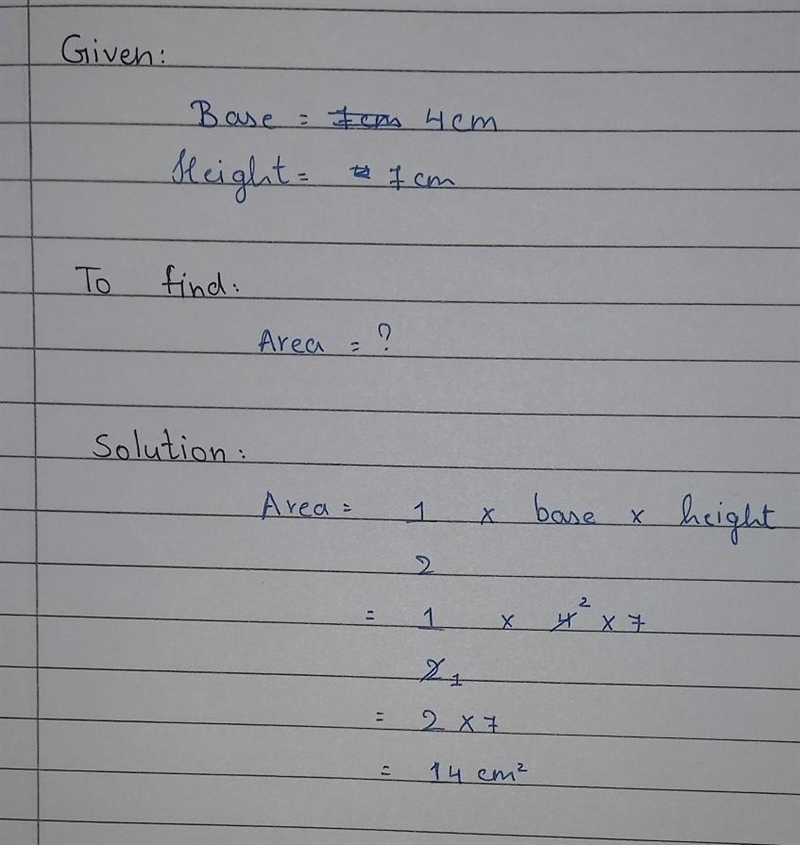 Given:
Base = 7cm 4cm
Height = 7cm
To find:
Area = ?
Solution:
Area = 1 x base x height
2
= 1 x 4 2 x 7
2 1
= 2 x 7
= 14 cm²